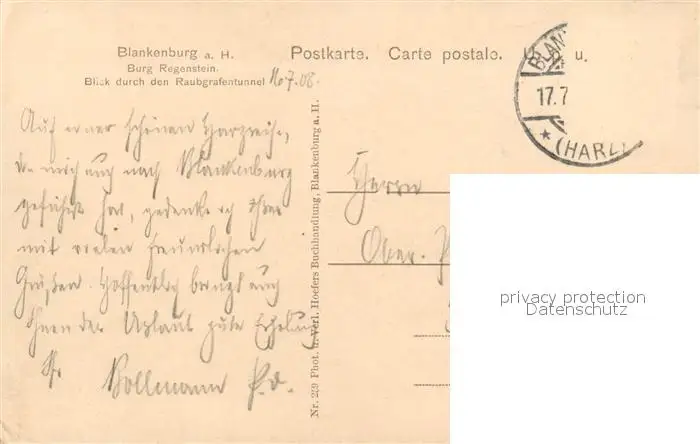 Blankenburg a. H.
Burg Regenstein.
Blick durch den Raubgrafentunnel
16.7.08.
Postkarte. Carte postale. U u.
BLAN
17.7
* (HARZ)
Auf einer schönen Harzreise,
die mich auch nach Blankenburg
geführt hat, gedenke ich Ihrer
mit vielen freundlichen
Grüßen. Hoffentlich bringt auch
Ihnen der Urlaub gute Erholung
Ihr
Bollmann P. d.
Nr. 239 Phot. u. Verl. Hoefers Buchhandlung, Blankenburg a. H.
Herrn
Ober-P
privacy protection
Datenschutz